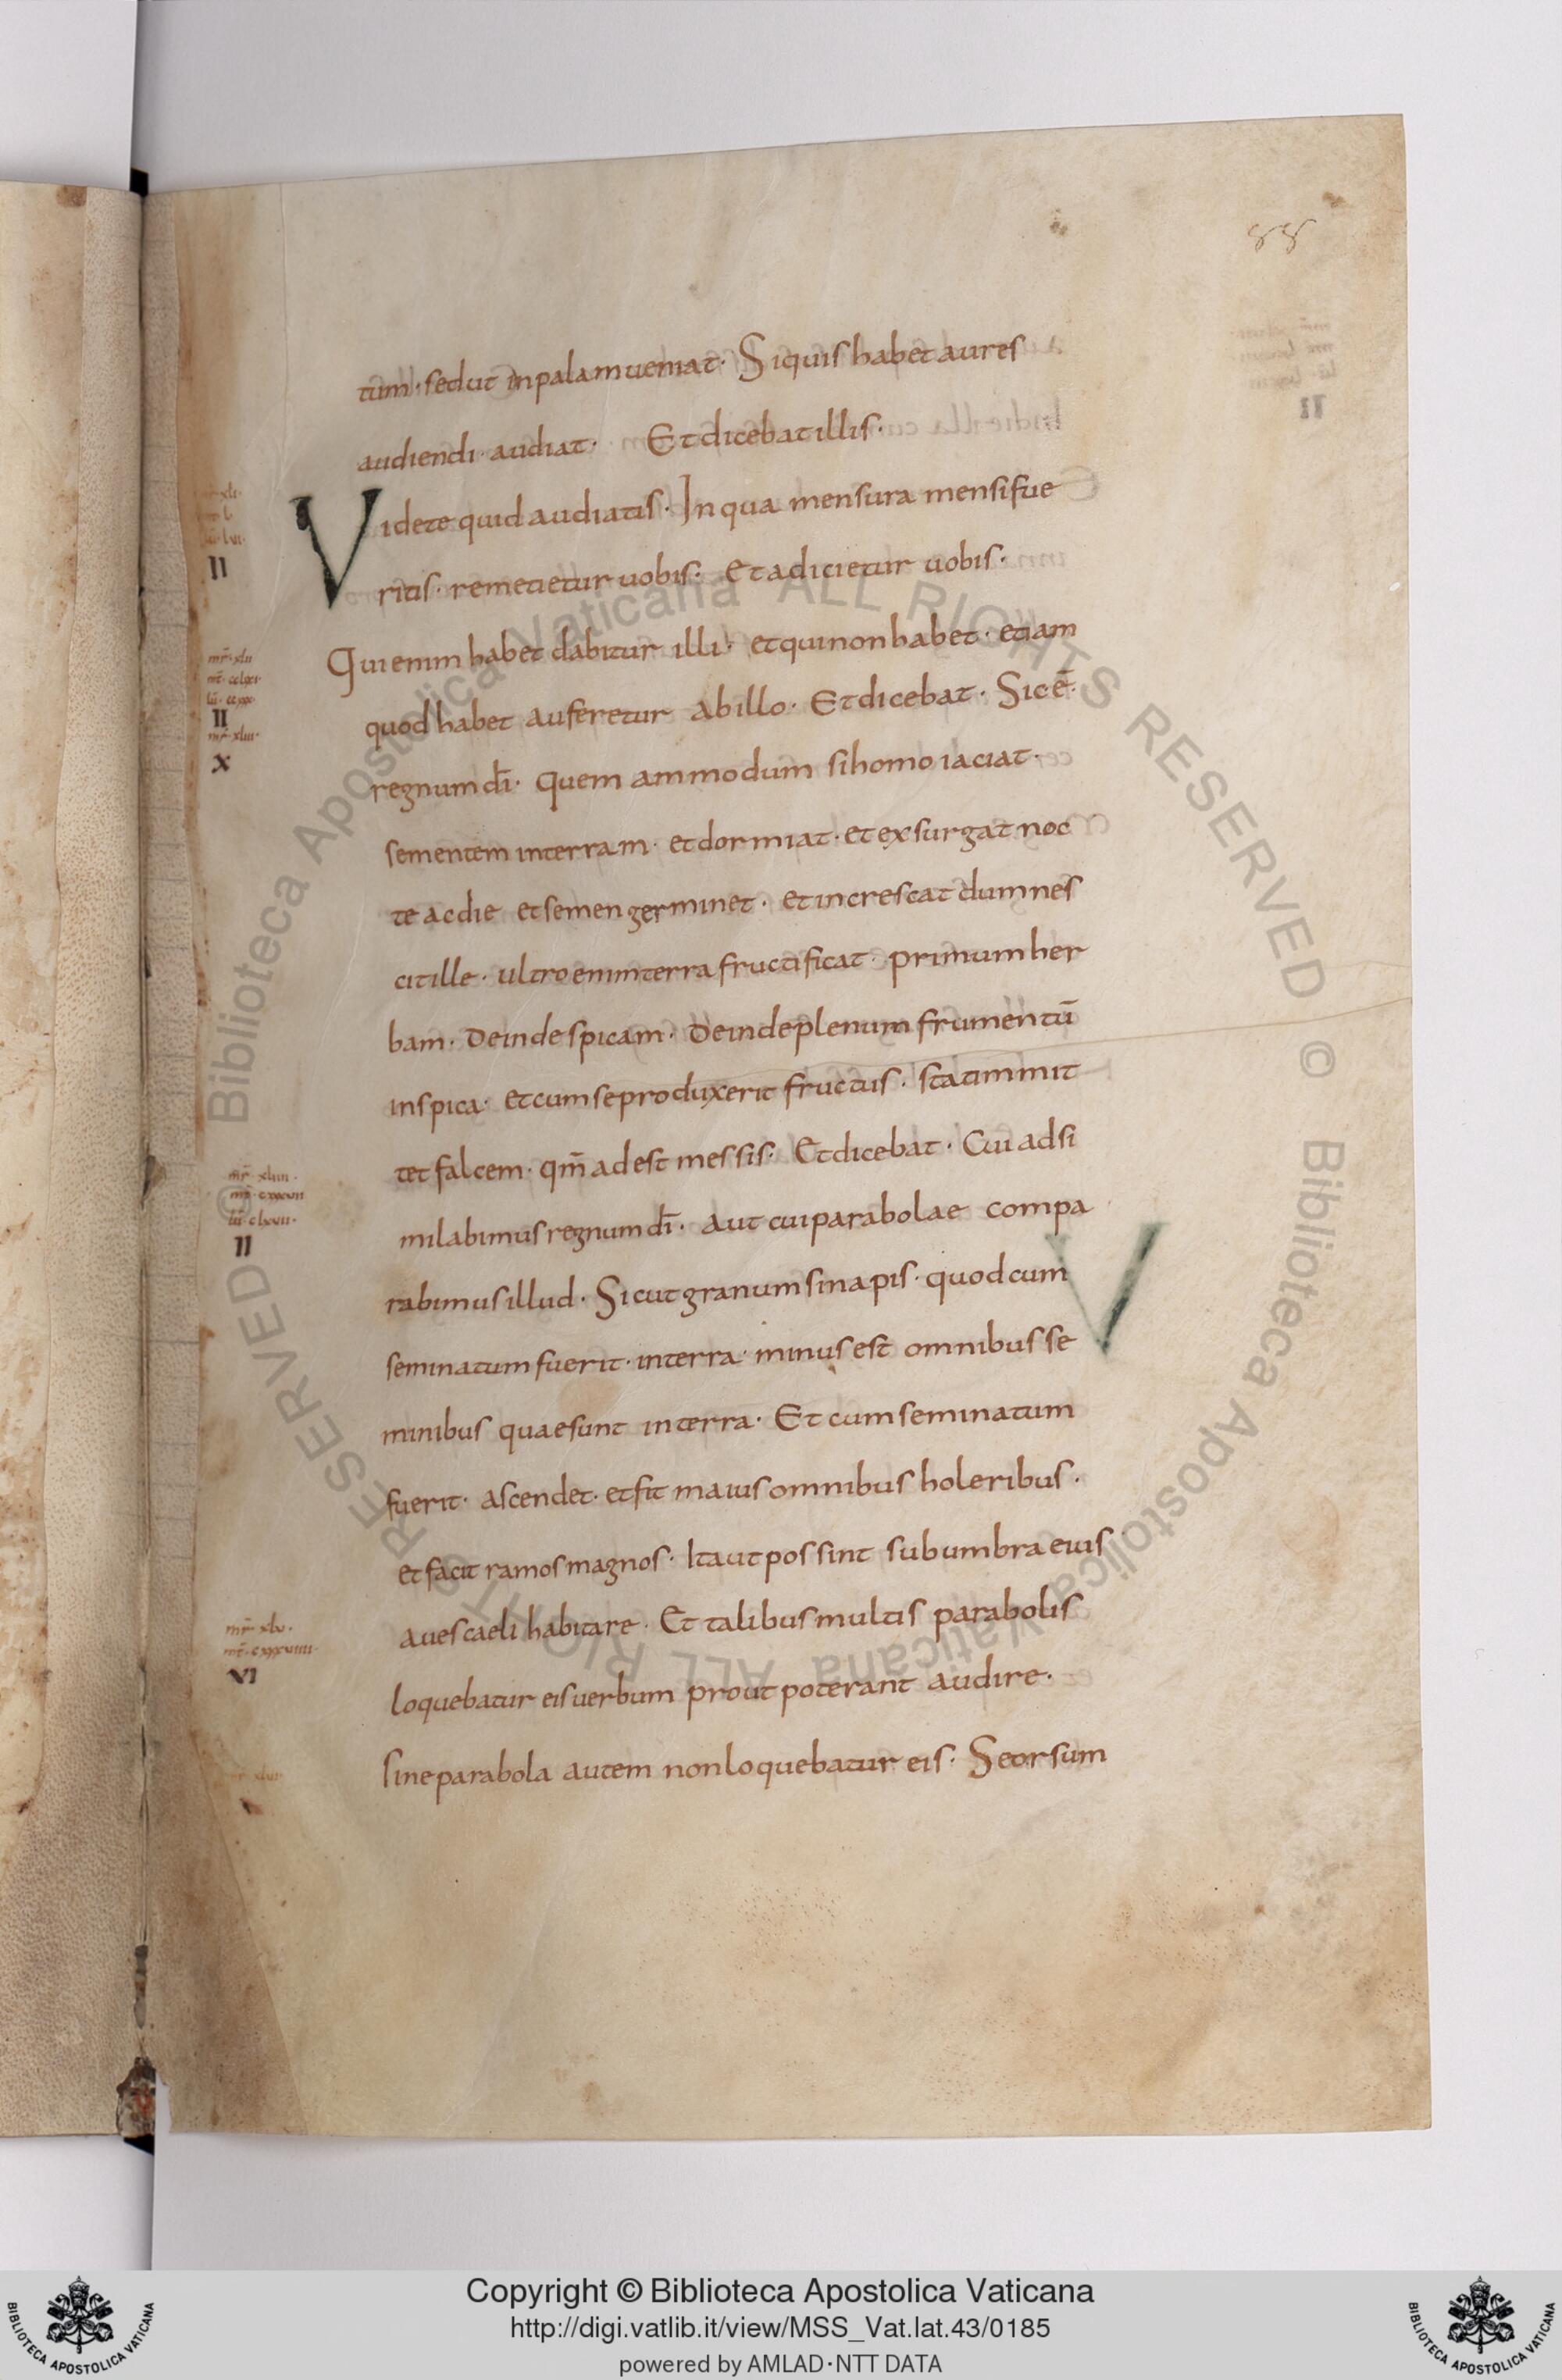 88
tum · sed ut inpalam ueniat · Siquis habet aures
audiendi · audiat · Et dicebat illis ·
Videte quid audiatis · In qua mensura mensi fue
ritis · remetietur uobis · Et adicietur uobis ·
Qui enim habet dabitur illi · et qui non habet · etiam
quod habet auferetur ab illo · Et dicebat · Sic ē ·
regnum dī · quem ammodum si homo iaciat ·
sementem interram · et dormiat · et exsurgat noc
te ac die et semen germinet · et increscat dum nes
cit ille · ultro enim terra fructificat · primum her
bam · deinde spicam · deinde plenum frumentū
in spica · et cum se produxerit fructus · statim mit
tet falcem · qm̄ adest messis · Et dicebat · Cui adsi
milabimus regnum dī · aut cui parabolae compa
rabimus illud · Sicut granum sinapis · quod cum
seminatum fuerit · in terra · minus est omnibus se
minibus quae sunt in terra · Et cum seminatum
fuerit · ascendet · et fit maius omnibus holeribus ·
et facit ramos magnos · Ita ut possint sub umbra eius
aues caeli habitare · Et talibus multis parabolis
loquebatur eis uerbum prout poterant audire ·
sine parabola autem non loquebatur eis · Seorsum
II
mr̄ · xlii
II
mr̄ · xliii ·
X
mr̄ · xliiii ·
lū · clxvii ·
II
mr̄ · xlv ·
mt̄ · cxxxviiii ·
VI
Biblioteca Apostolica Vaticana ALL RIGHTS RESERVED ©
Biblioteca Apostolica Vaticana ALL RIGHTS RESERVED ©
BIBLIOTECA APOSTOLICA VATICANA
Copyright © Biblioteca Apostolica Vaticana
http://digi.vatlib.it/view/MSS_Vat.lat.43/0185
powered by AMLAD·NTT DATA
BIBLIOTECA APOSTOLICA VATICANA